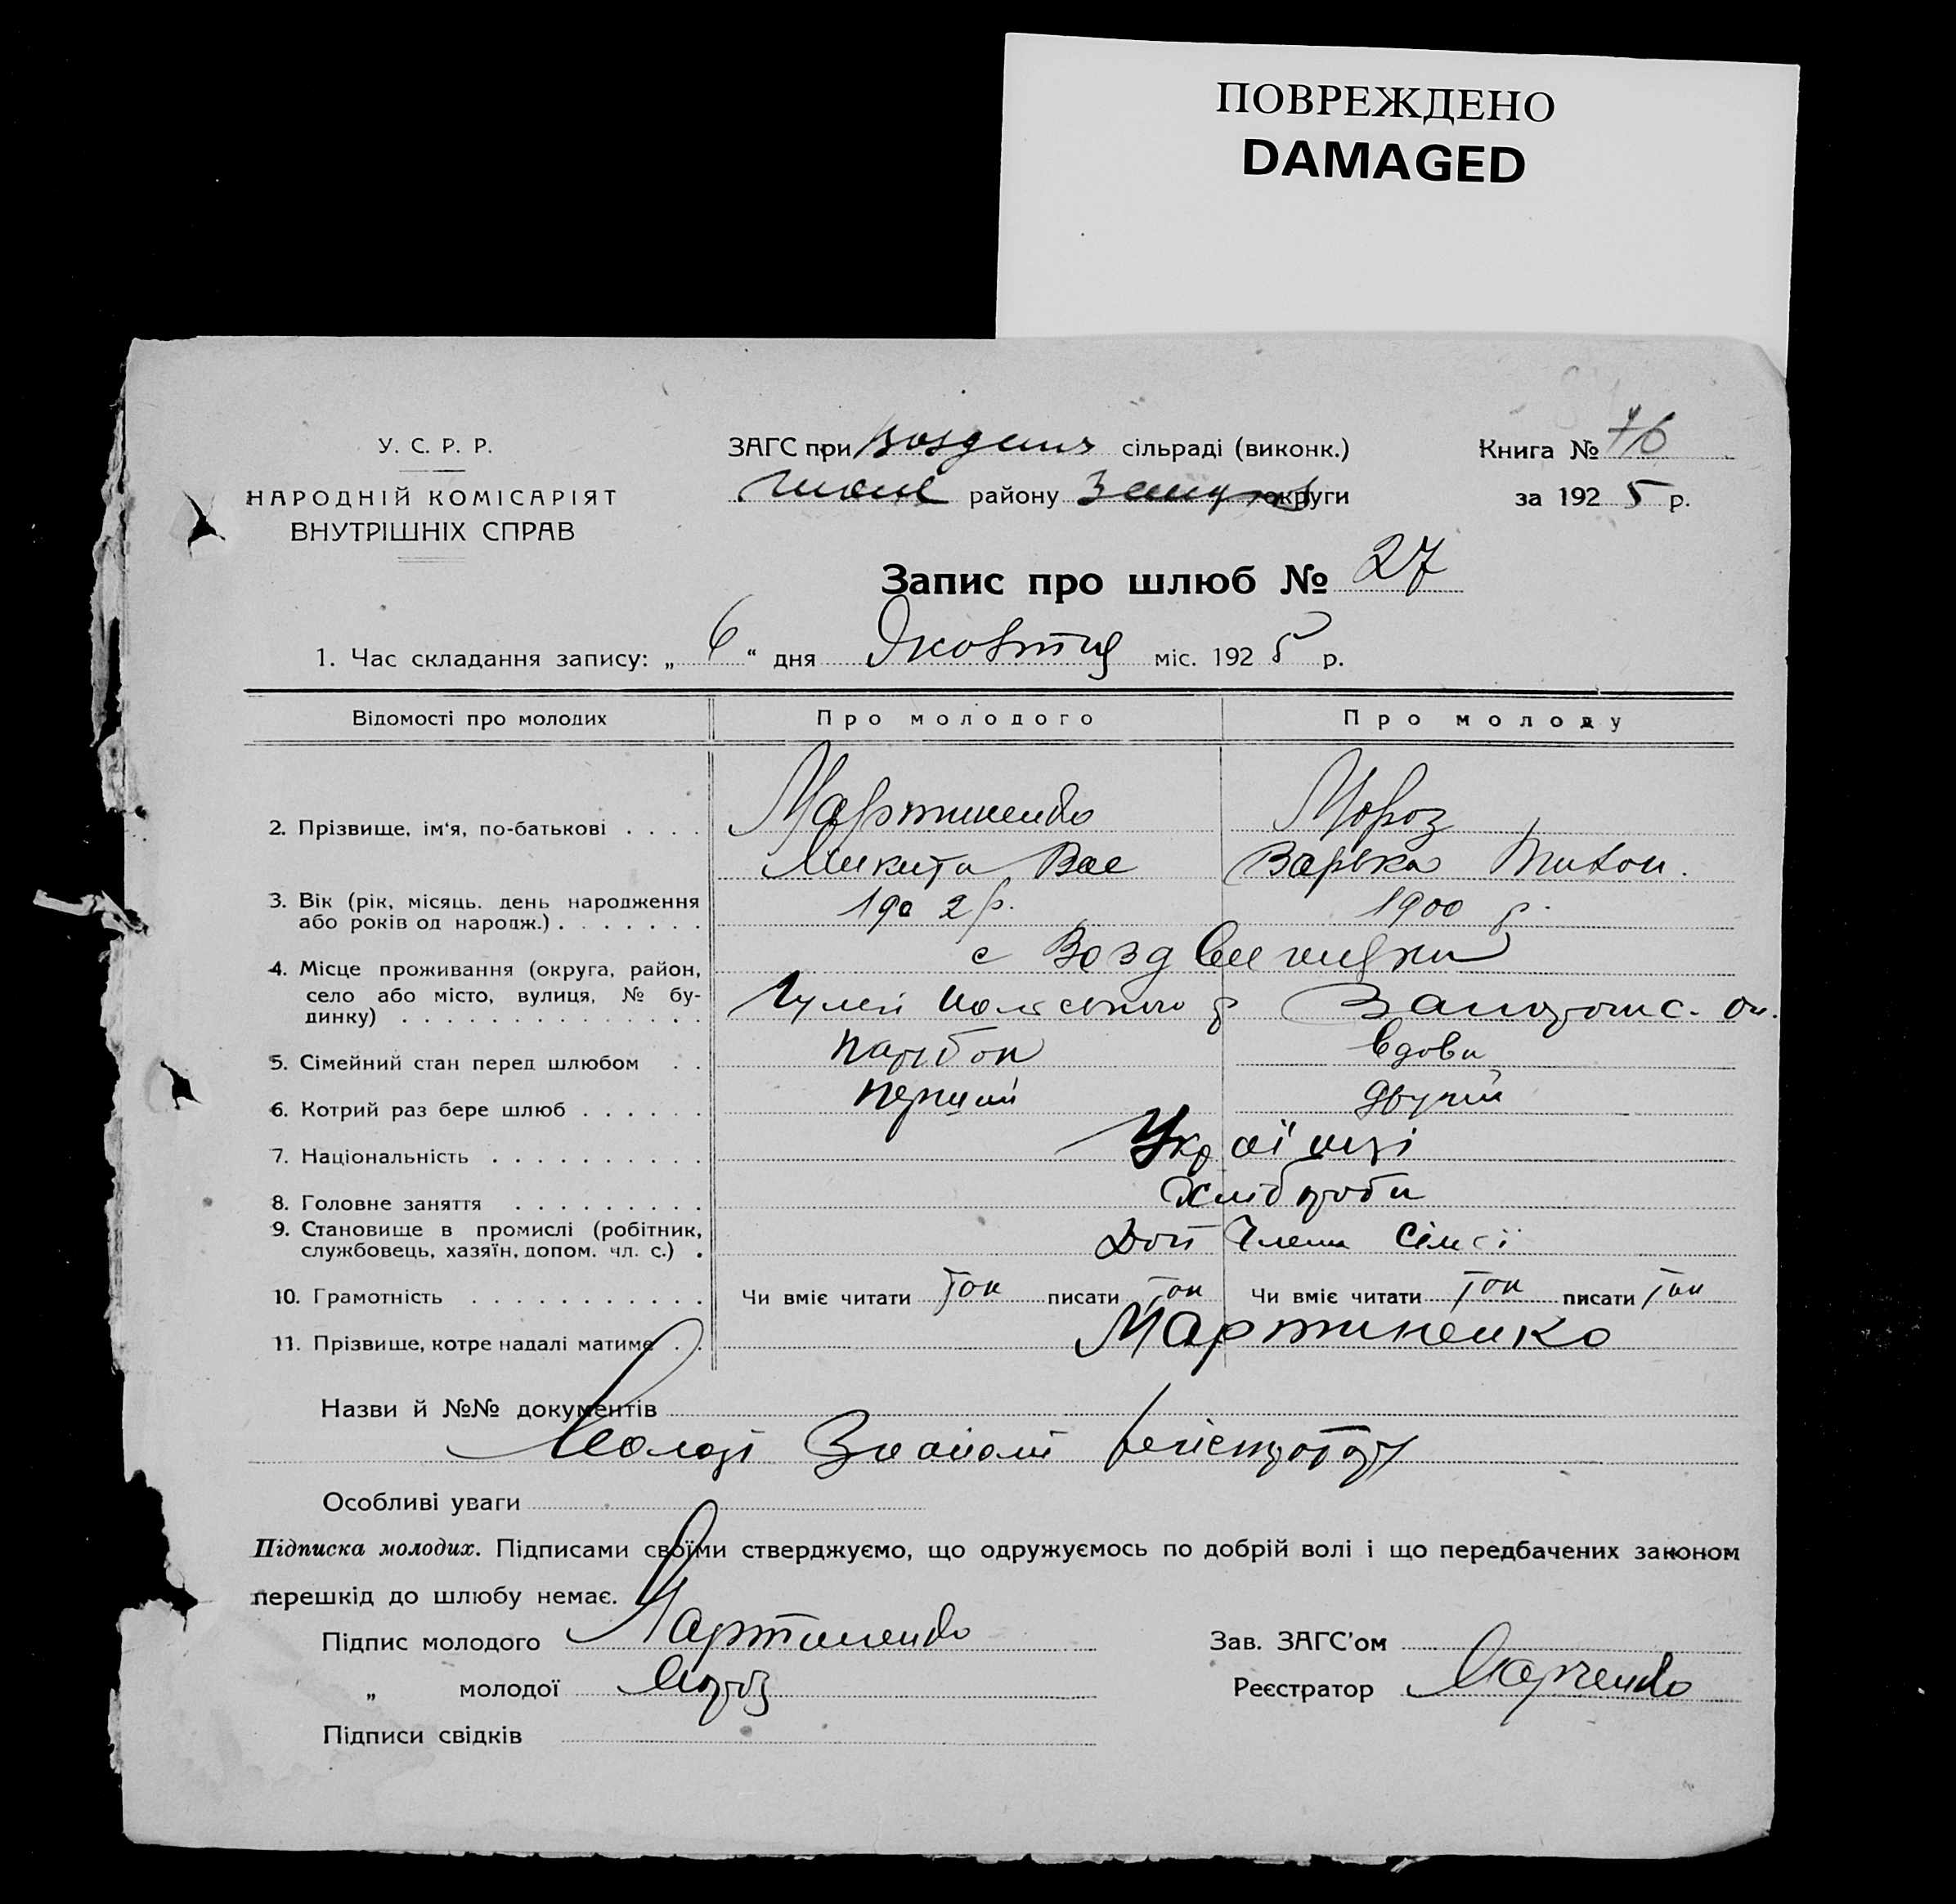 ПОВРЕЖДЕНО
DAMAGED
У. С. Р. Р.
НАРОДНІЙ КОМІСАРІЯТ
ВНУТРІШНІХ СПРАВ
ЗАГС при сільраді (виконк.)
району округи
Книга № 76
за 1925 р.
Запис про шлюб № 27
1. Час складання запису: „ 6 “ дня Жовтня міс. 1925 р.
Відомості про молодих Про молодого Про молоду
2. Прізвище, ім'я, по-батькові . . . . Мартиненко Мороз
Микита Вас Варька Тихон.
3. Вік (рік, місяць. день народження
або років од народж.) . . . . . . . 1902 р. 1900 р.
4. Місце проживання (округа, район,
село або місто, вулиця, № бу-
динку) . . . . . . . . . . . . . .
с Воздвижифки
Гуляй Польського р Запорож. Ок.
5. Сімейний стан перед шлюбом . . парубок вдова
6. Котрий раз бере шлюб . . . . . . перший другий
7. Національність . . . . . . . . . . Українці
8. Головне заняття . . . . . . . . . Хлібороби
9. Становище в промислі (робітник,
службовець, хазяїн, допом. чл. с.) .
Доп Члени Сімєї
10. Грамотність . . . . . . . . . . . Чи вміє читати Так писати Так Чи вміє читати Так писати Так
11. Прізвище, котре надалі матиме . . Мартиненко
Назви й №№ документів
Молоді Знайомі
Особливі уваги
Підписка молодих. Підписами своїми стверджуємо, що одружуємось по добрій волі і що передбачених законом
перешкід до шлюбу немає.
Підпис молодого Мартиненко
„ молодої Мороз
Підписи свідків
Зав. ЗАГС'ом
Реєстратор Марченко